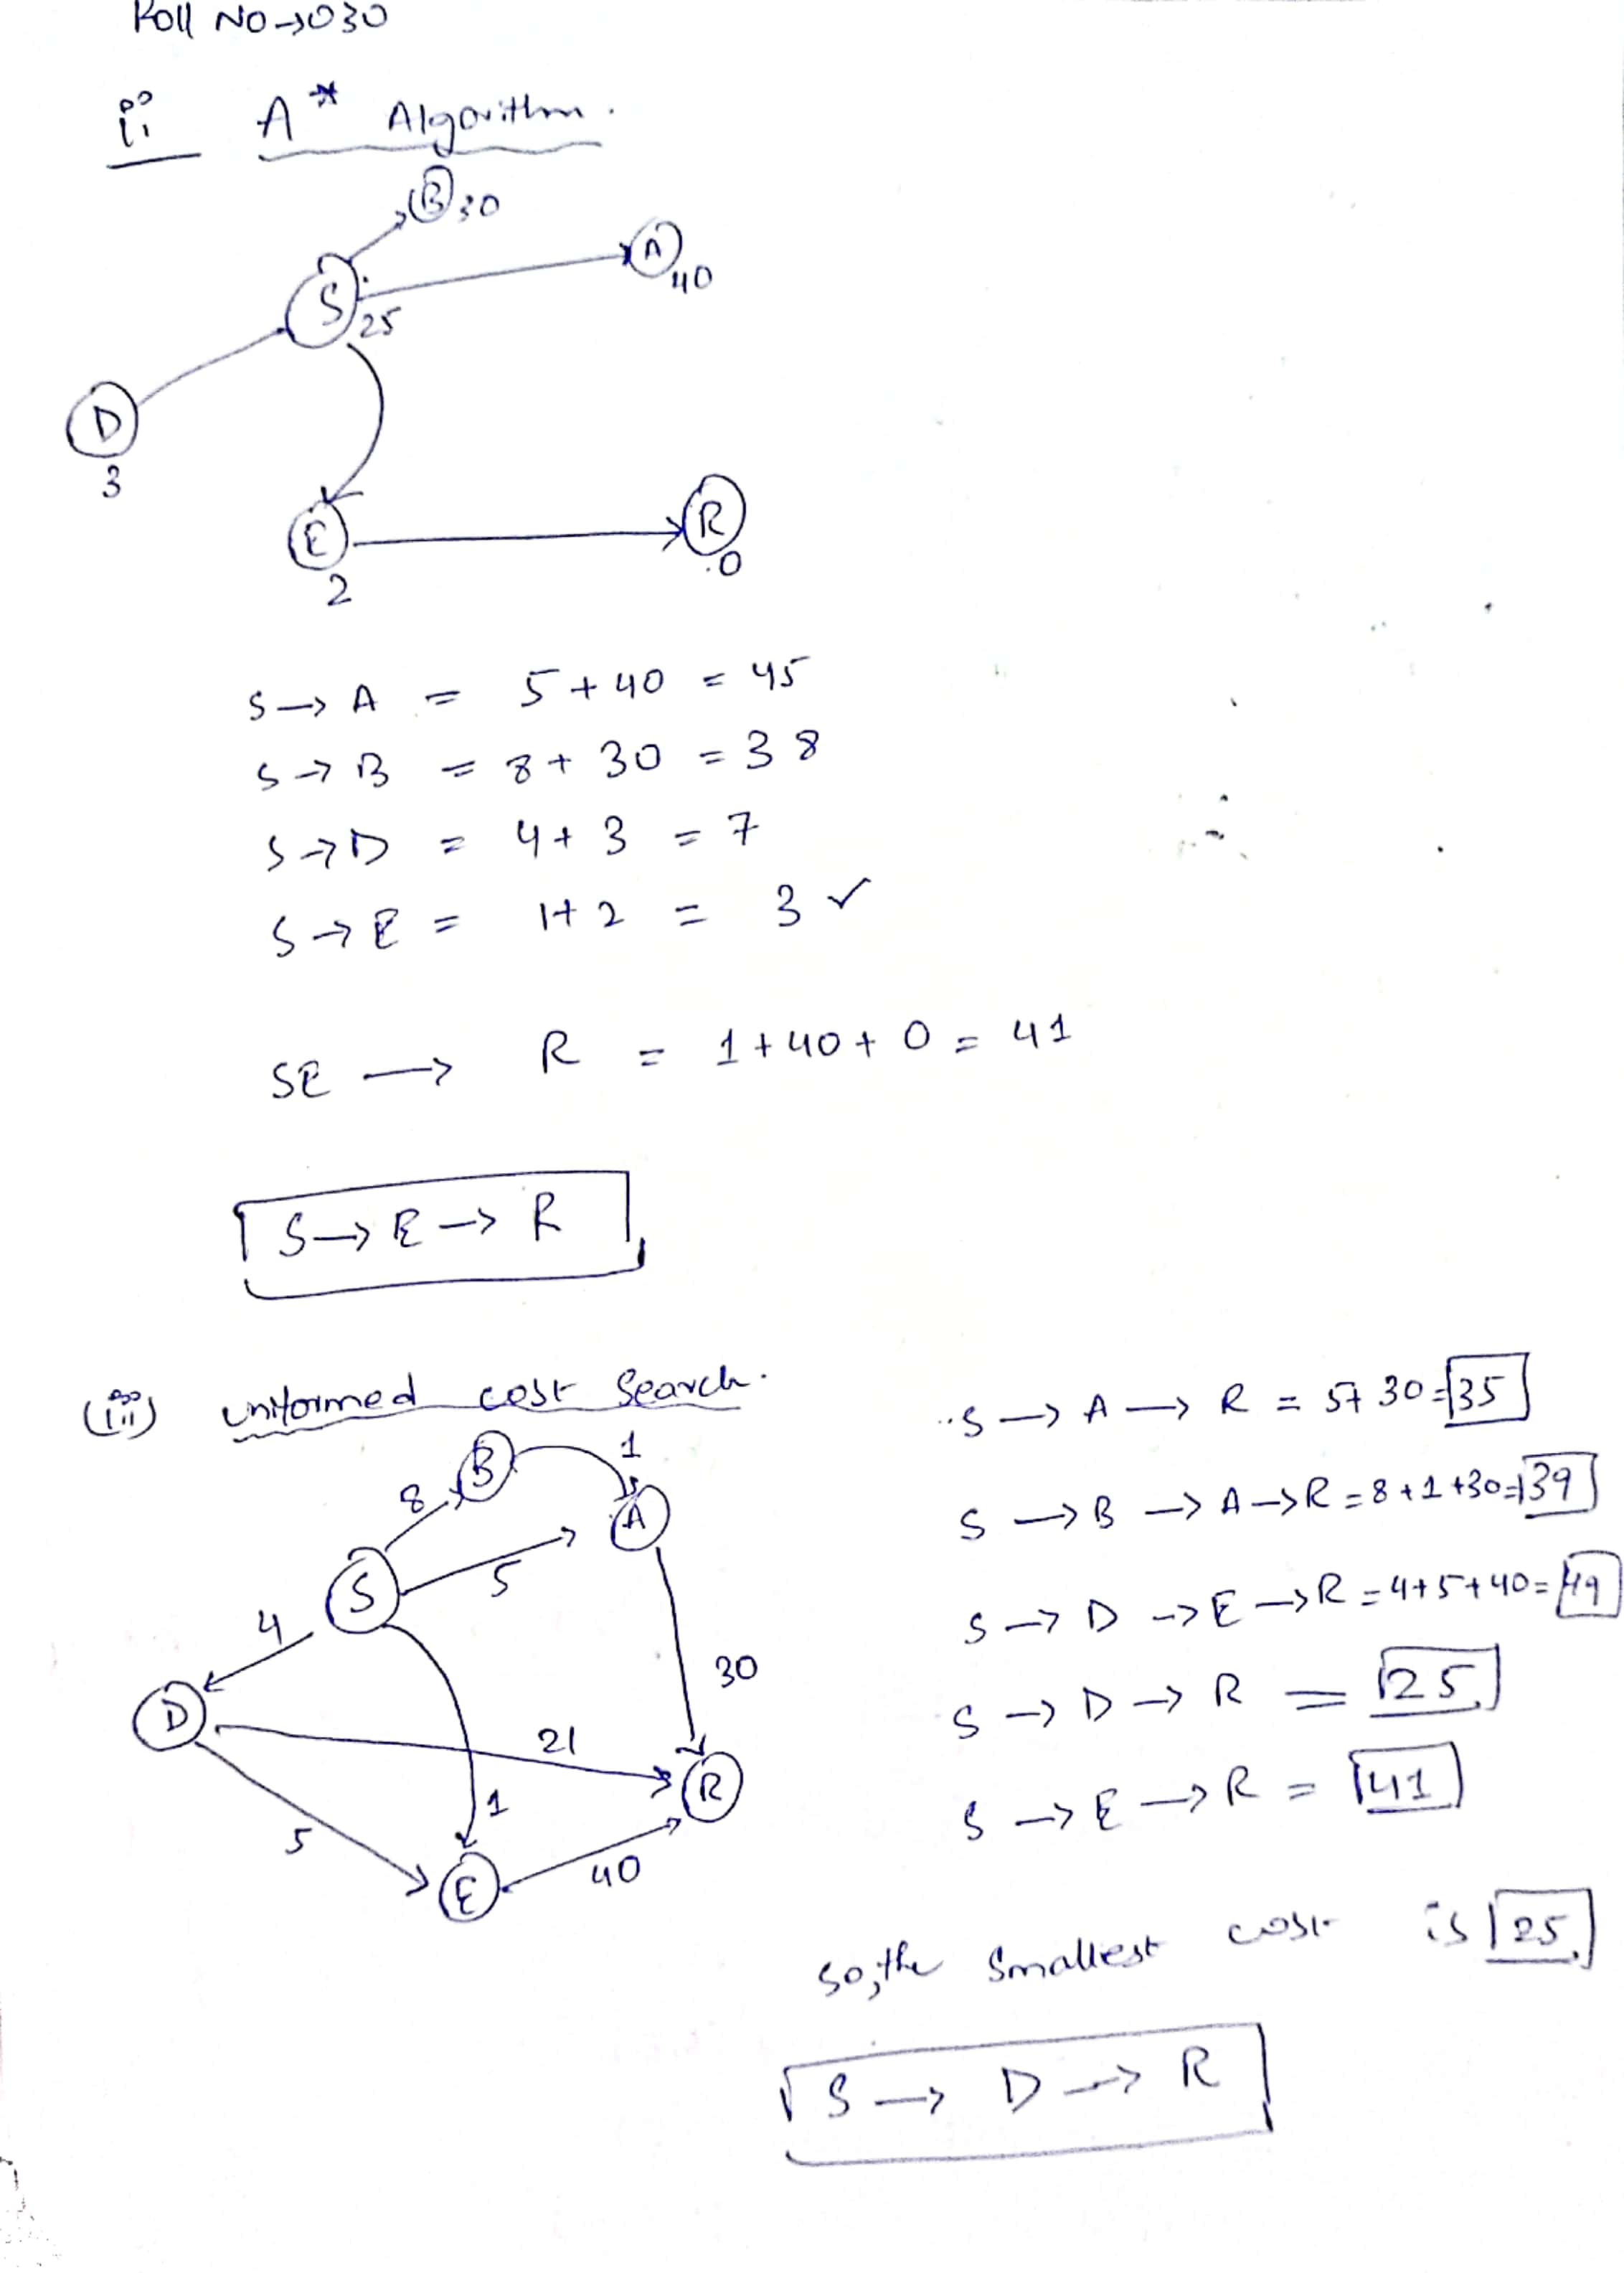 Roll No → 030
ii A* Algorithm.
B 30
A 40
S 25
D
3
E
2
R
0
S → A = 5 + 40 = 45
S → B = 8 + 30 = 38
S → D = 4 + 3 = 7
S → E = 1 + 2 = 3 ✓
SE → R = 1 + 40 + 0 = 41
S → E → R
(iii) uniformed cost Search.
B
1
8
A
S
5
4
D
30
21
R
1
5
E
40
S → A → R = 5 + 30 = 35
S → B → A → R = 8 + 1 + 30 = 39
S → D → E → R = 4 + 5 + 40 = 49
S → D → R = 25
S → E → R = 41
so, the smallest cost is 25.
S → D → R